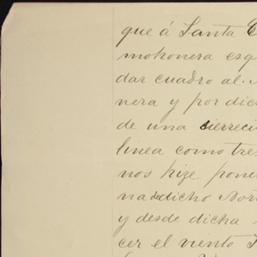 que á Santa
mohonera esq
dar cuadro al
nera y por dic
de una sierreci
linea como tre
nos hize pone
na dicho Nor
y desde dicha
cer el viento